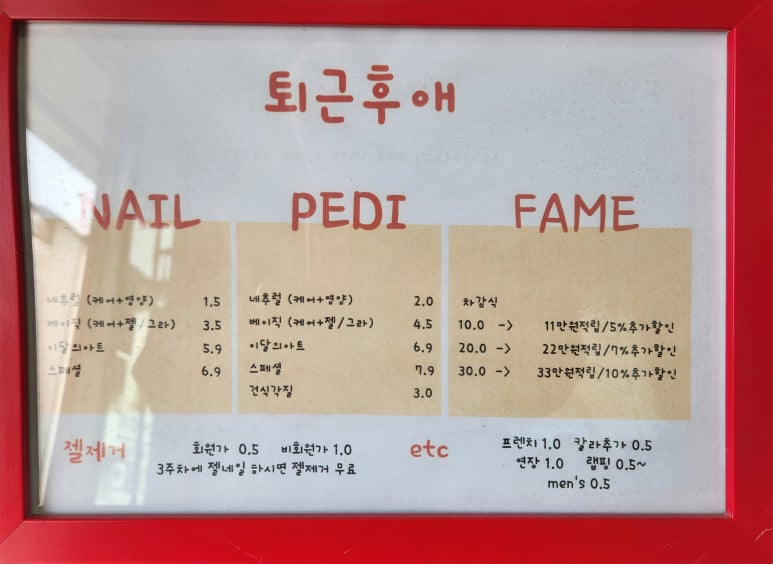 퇴근후애
NAIL
네츄럴 (케어+영양) 1.5
베이직 (케어+젤/그라) 3.5
이달의아트 5.9
스페셜 6.9
PEDI
네츄럴 (케어+영양) 2.0
베이직 (케어+젤/그라) 4.5
이달의아트 6.9
스페셜 7.9
건식각질 3.0
FAME
차감식
10.0 -> 11만원적립/5%추가할인
20.0 -> 22만원적립/7%추가할인
30.0 -> 33만원적립/10%추가할인
젤제거
회원가 0.5 비회원가 1.0
3주차에 젤네일 하시면 젤제거 무료
etc
프렌치 1.0 칼라추가 0.5
연장 1.0 랩핑 0.5~
men's 0.5